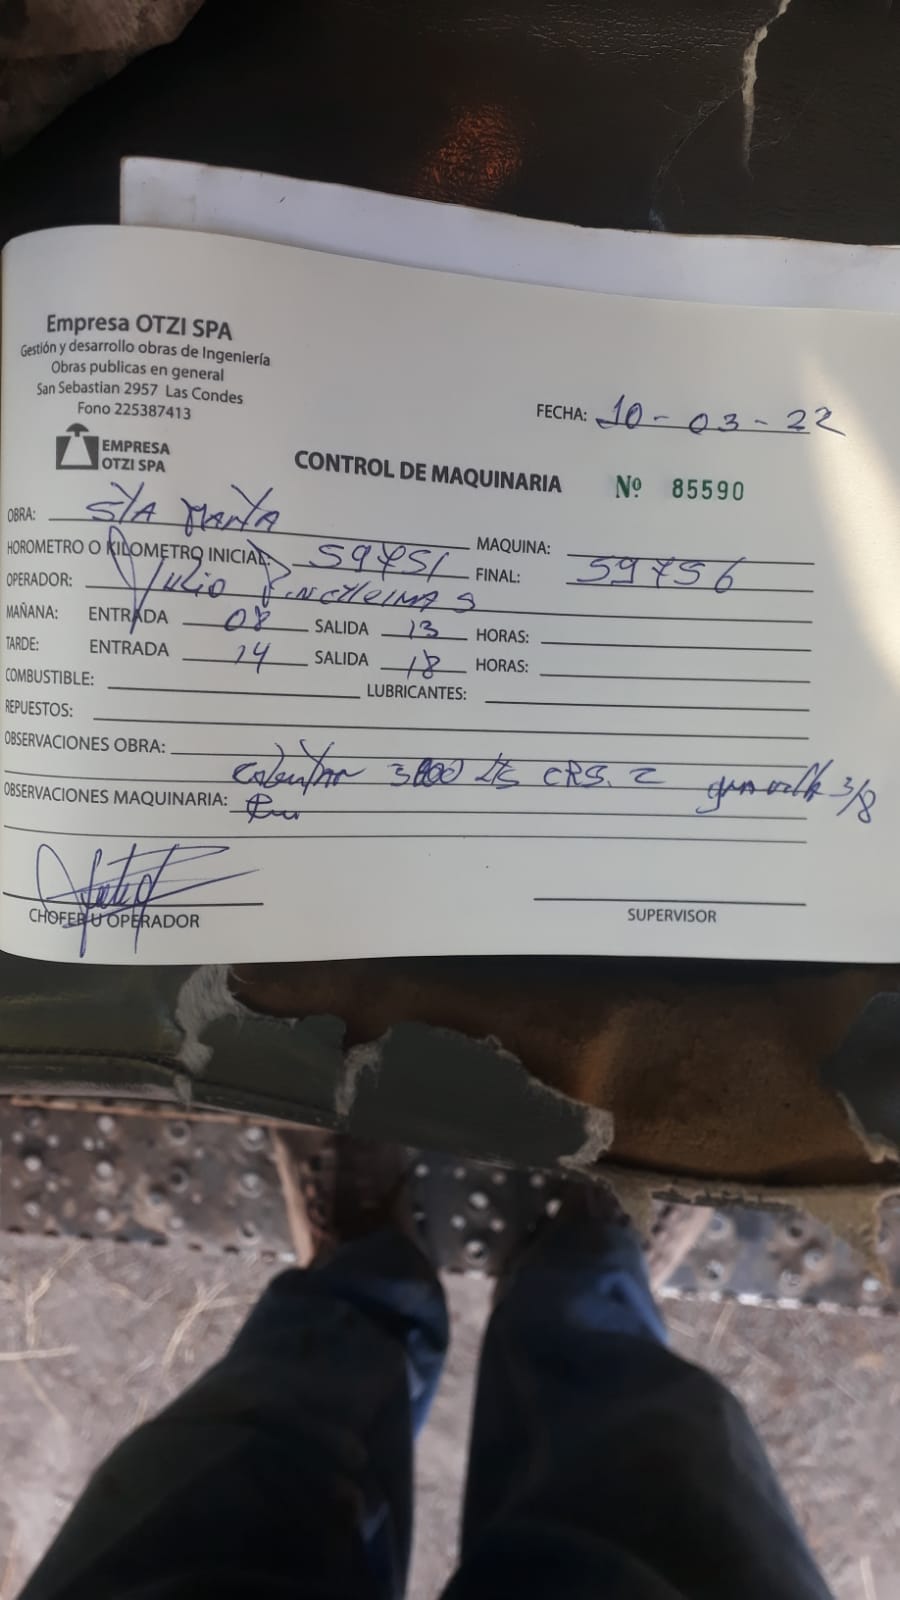 Empresa OTZI SPA
Gestión y desarrollo obras de Ingeniería
Obras publicas en general
San Sebastian 2957 Las Condes
Fono 225387413
EMPRESA
OTZI SPA
FECHA: 10-03-22
CONTROL DE MAQUINARIA Nº 85590
OBRA: STA MARTA MAQUINA:
HOROMETRO O KILOMETRO INICIAL: 59751 FINAL: 59756
OPERADOR: Julio
MAÑANA: ENTRADA 08 SALIDA 13 HORAS:
TARDE: ENTRADA 14 SALIDA 18 HORAS:
COMBUSTIBLE: LUBRICANTES:
REPUESTOS:
OBSERVACIONES OBRA:
Calentar Lts CRS. 2 gravilla 3/8
OBSERVACIONES MAQUINARIA:
CHOFER U OPERADOR SUPERVISOR